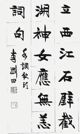 立西江石壁截
湖神女應無恙
詞句